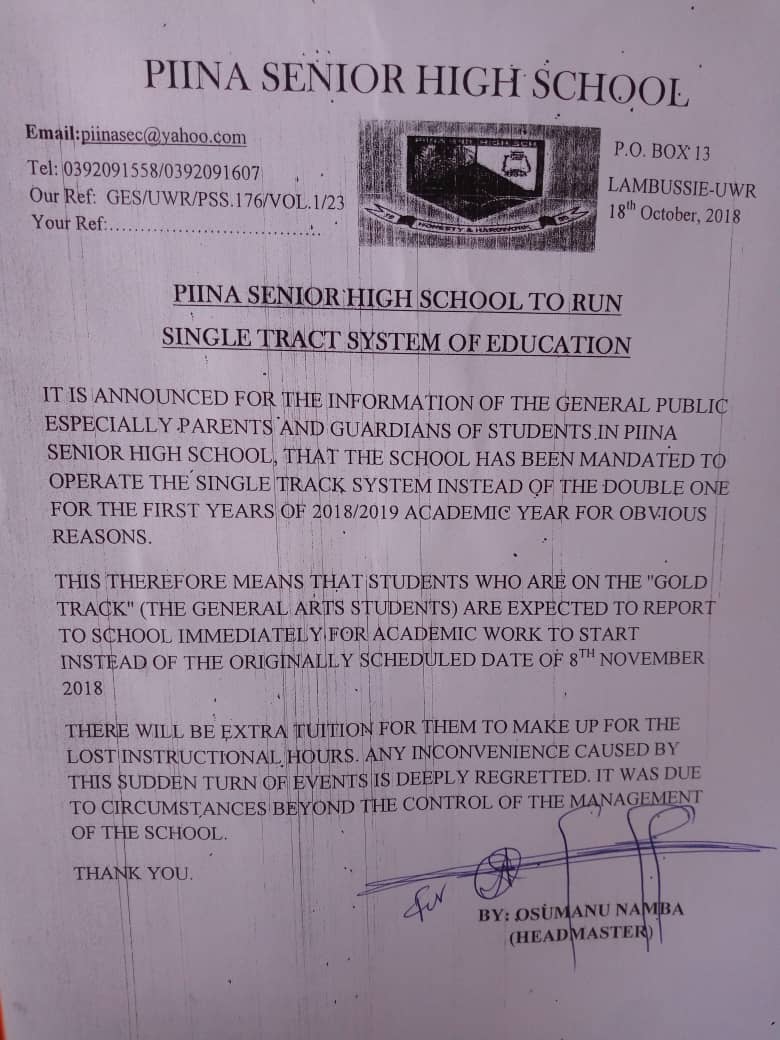 PIINA SENIOR HIGH SCHOOL
Email:piinasec@yahoo.com
Tel: 0392091558/0392091607
Our Ref: GES/UWR/PSS.176/VOL.1/23
Your Ref:................................
PIINA SNR HIGH SCH
HONESTY & HARDWORK
P.O. BOX 13
LAMBUSSIE-UWR
18th October, 2018
PIINA SENIOR HIGH SCHOOL TO RUN
SINGLE TRACT SYSTEM OF EDUCATION
IT IS ANNOUNCED FOR THE INFORMATION OF THE GENERAL PUBLIC
ESPECIALLY PARENTS AND GUARDIANS OF STUDENTS IN PIINA
SENIOR HIGH SCHOOL, THAT THE SCHOOL HAS BEEN MANDATED TO
OPERATE THE SINGLE TRACK SYSTEM INSTEAD OF THE DOUBLE ONE
FOR THE FIRST YEARS OF 2018/2019 ACADEMIC YEAR FOR OBVIOUS
REASONS.
THIS THEREFORE MEANS THAT STUDENTS WHO ARE ON THE "GOLD
TRACK" (THE GENERAL ARTS STUDENTS) ARE EXPECTED TO REPORT
TO SCHOOL IMMEDIATELY FOR ACADEMIC WORK TO START
INSTEAD OF THE ORIGINALLY SCHEDULED DATE OF 8TH NOVEMBER
2018
THERE WILL BE EXTRA TUITION FOR THEM TO MAKE UP FOR THE
LOST INSTRUCTIONAL HOURS. ANY INCONVENIENCE CAUSED BY
THIS SUDDEN TURN OF EVENTS IS DEEPLY REGRETTED. IT WAS DUE
TO CIRCUMSTANCES BEYOND THE CONTROL OF THE MANAGEMENT
OF THE SCHOOL.
THANK YOU.
for
BY: OSUMANU NAMBA
(HEADMASTER)